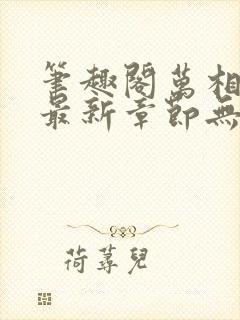 筆趣閣萬相
最新章節無
荷蕁兒